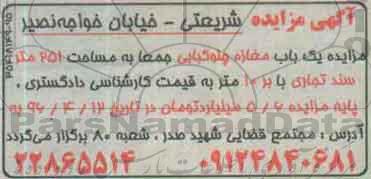 آگهی مزایده شریعتی - خیابان خواجه‌نصیر
مزایده یک باب مغازه چلوکبابی جمعا به مساحت ۲۵۱ متر
سند تجاری با بر ۱۰ متر به قیمت کارشناسی دادگستری .
پایه مزایده ۶/۵ میلیاردتومان در تاریخ ۱۲/۴/۹۶ به
آدرس : مجتمع قضایی شهید صدر . شعبه ۸۰ برگزار می‌گردد
۰۹۱۲۴۸۴۰۶۸۱ ۲۲۸۶۵۵۱۴
ParsNamadData